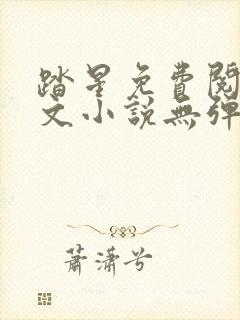 踏星免費閱
文小說無彈
蕭瀟兮